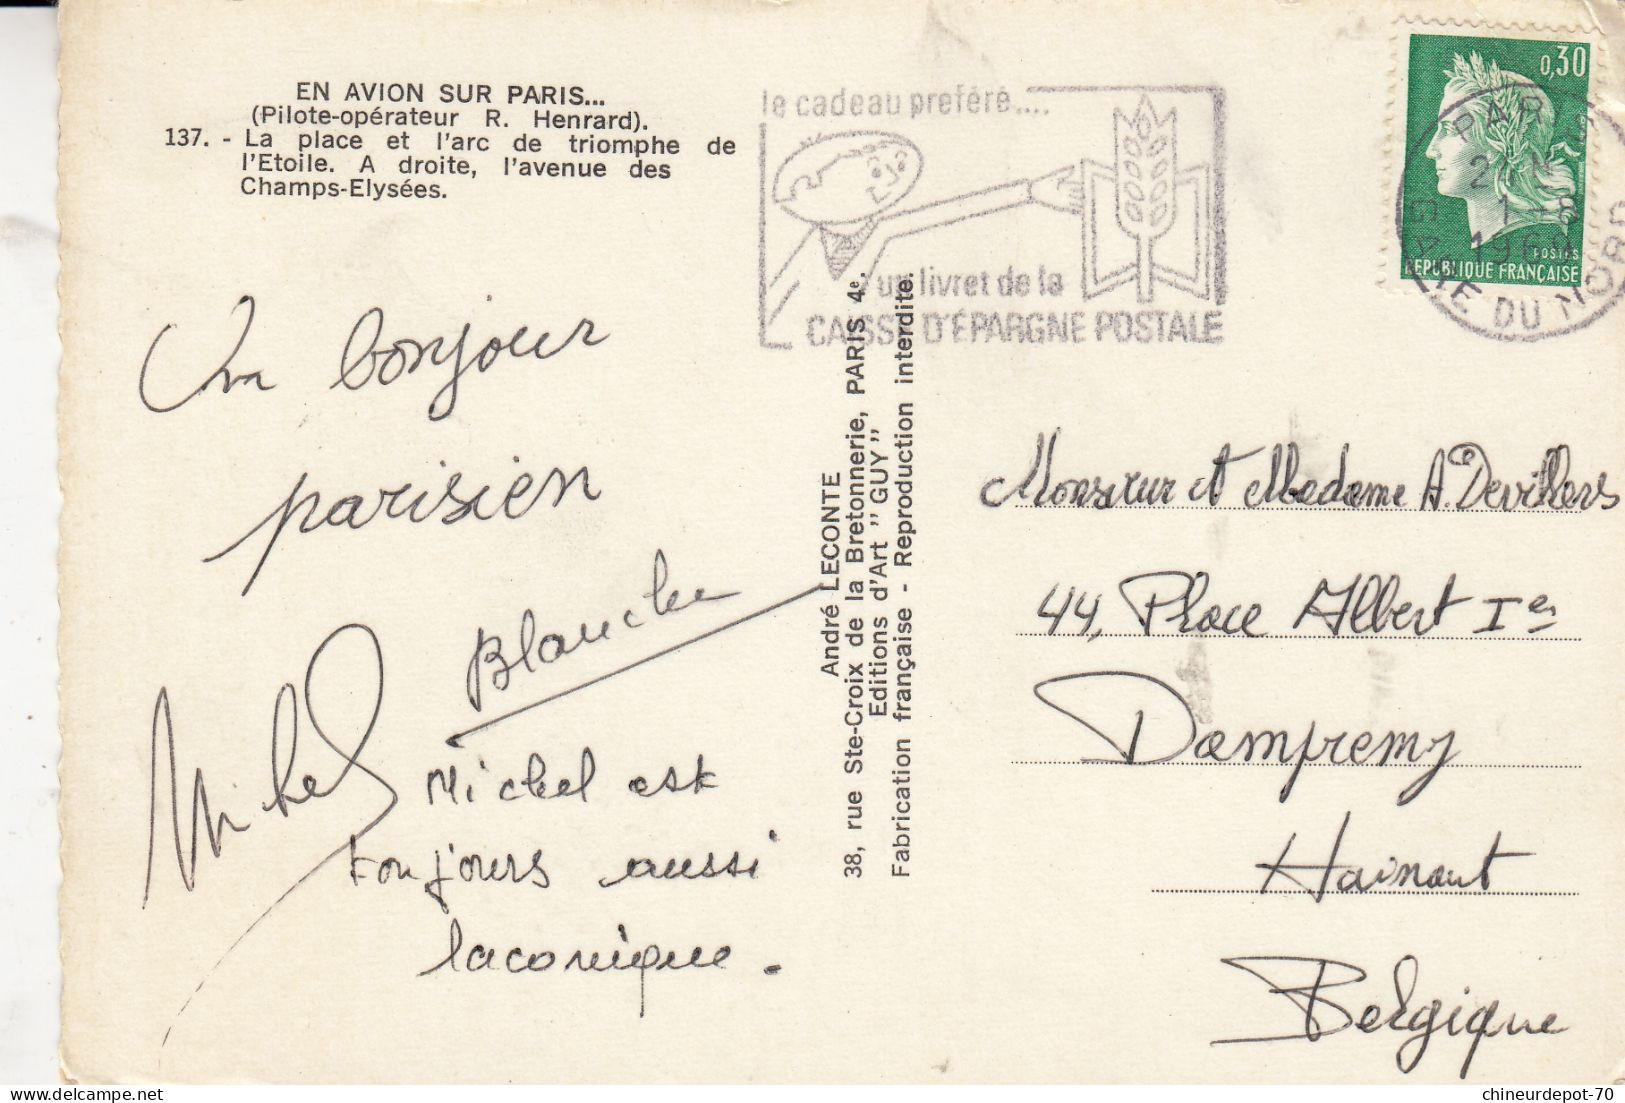 EN AVION SUR PARIS...
(Pilote-opérateur R. Henrard).
137. - La place et l'arc de triomphe de
l'Etoile. A droite, l'avenue des
Champs-Elysées.
le cadeau préféré....
un livret de la
CAISSE D'ÉPARGNE POSTALE
0,30
POSTES
REPUBLIQUE FRANÇAISE
PARIS
GARE DU NORD
Un bonjour
parisien
Blanche
Michel
Michel est
toujours aussi
laconique.
André LECONTE
38, rue Ste-Croix de la Bretonnerie, PARIS 4e.
Editions d'Art "GUY"
Fabrication française - Reproduction interdite.
Monsieur et Madame A. Devillers
44, Place Albert Ier
Dampremy
Hainaut
Belgique
chineurdepot-70